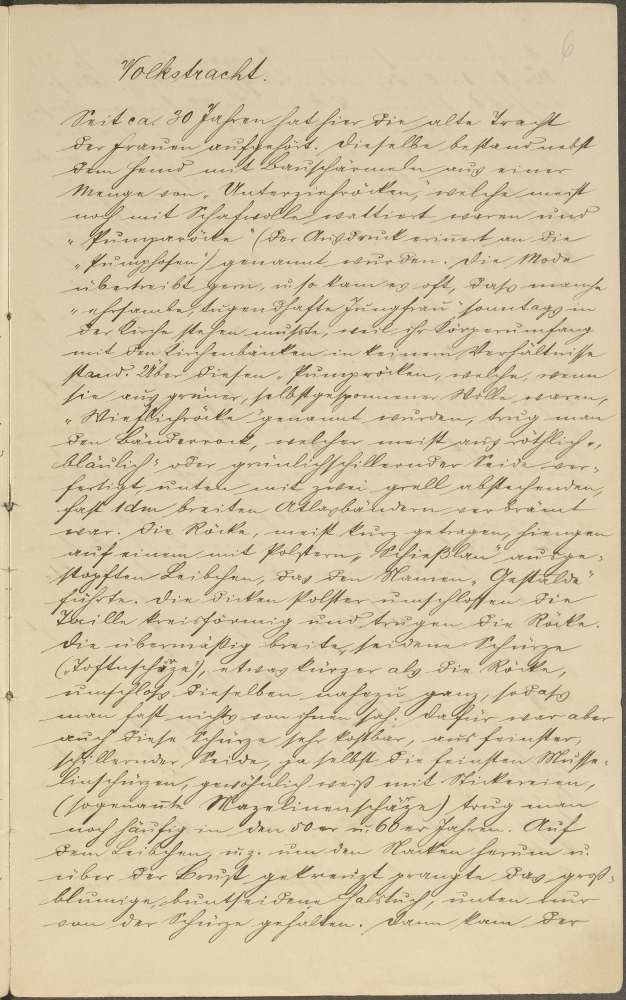 6
Volkstracht.
Seit ca. 30 Jahren hat hier die alte Tracht
der Frauen aufgehört. Dieselbe bestand nebst
dem Hemd mit Bauschärmeln aus einer
Menge von „Unterziehröcken“, welche meist
noch mit Schafwolle wattiert waren und
„Pumparöcke“ (der Ausdruck erinert an die
„Pumphosen“) genannt wurden. Die Mode
übertreibt gern, u. so kam es oft, daß manche
„ehrsambe, tugendhafte Jungfrau“ sonntags in
der Kirche stehen mußte, weil ihr Körperumfang
mit den Kirchenbänken in keinem Verhältnisse
stand. Über diesen „Pumpröcken, welche, wenn
sie aus grüner, selbstgesponnener Wolle waren,
„Wieflichröcke“ genannt wurden, trug man
den Bänderrock, welcher meist aus röthlich-,
bläulich- oder grünlichschillernder Seide ver-
fertigt, unten mit zwei grell abstechenden,
fast 1dm breiten Atlasbändern verbrämt
war. Die Röcke, meist kurz getragen, hiengen
auf einem mit Polstern, „Schießlan“ ausge-
stopften Leibchen, das den Namen „Gestalde“
führte. Die dicken Polster umschlossen die
Taille kreisförmig und trugen die Röcke.
Die übermäßig breite, seidene Schürze
(„Toftnschäze“), etwas kürzer als die Röcke,
umschloß dieselben nahezu ganz, sodaß
man fast nichts von ihnen sah. Dafür war aber
auch diese Schürze sehr kostbar, aus feinster,
schillernder Seide, ja selbst die feinsten Musse-
linschürzen, gewöhnlich weiß mit Stickereien,
(sogenante Mazelinenschäze) trug man
noch häufig in den 50er u. 60er Jahren. Auf
dem Leibchen, u. z. um den Nacken herum u.
über der Brust gekreuzt prangte das groß-
blumige, buntseidene Halstuch, unten nur
von der Schürze gehalten. Dann kam der